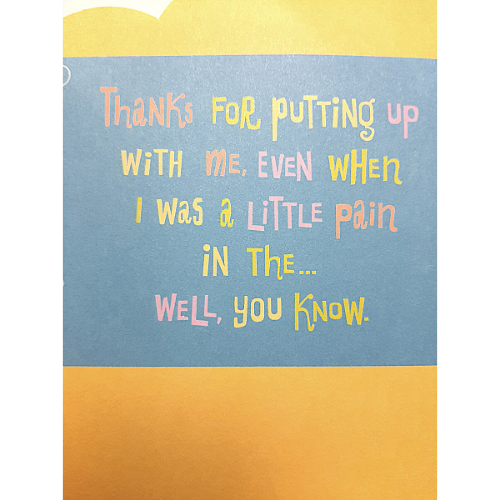 Thanks for putting up
with me, even when
I was a little pain
in the...
well, you know.